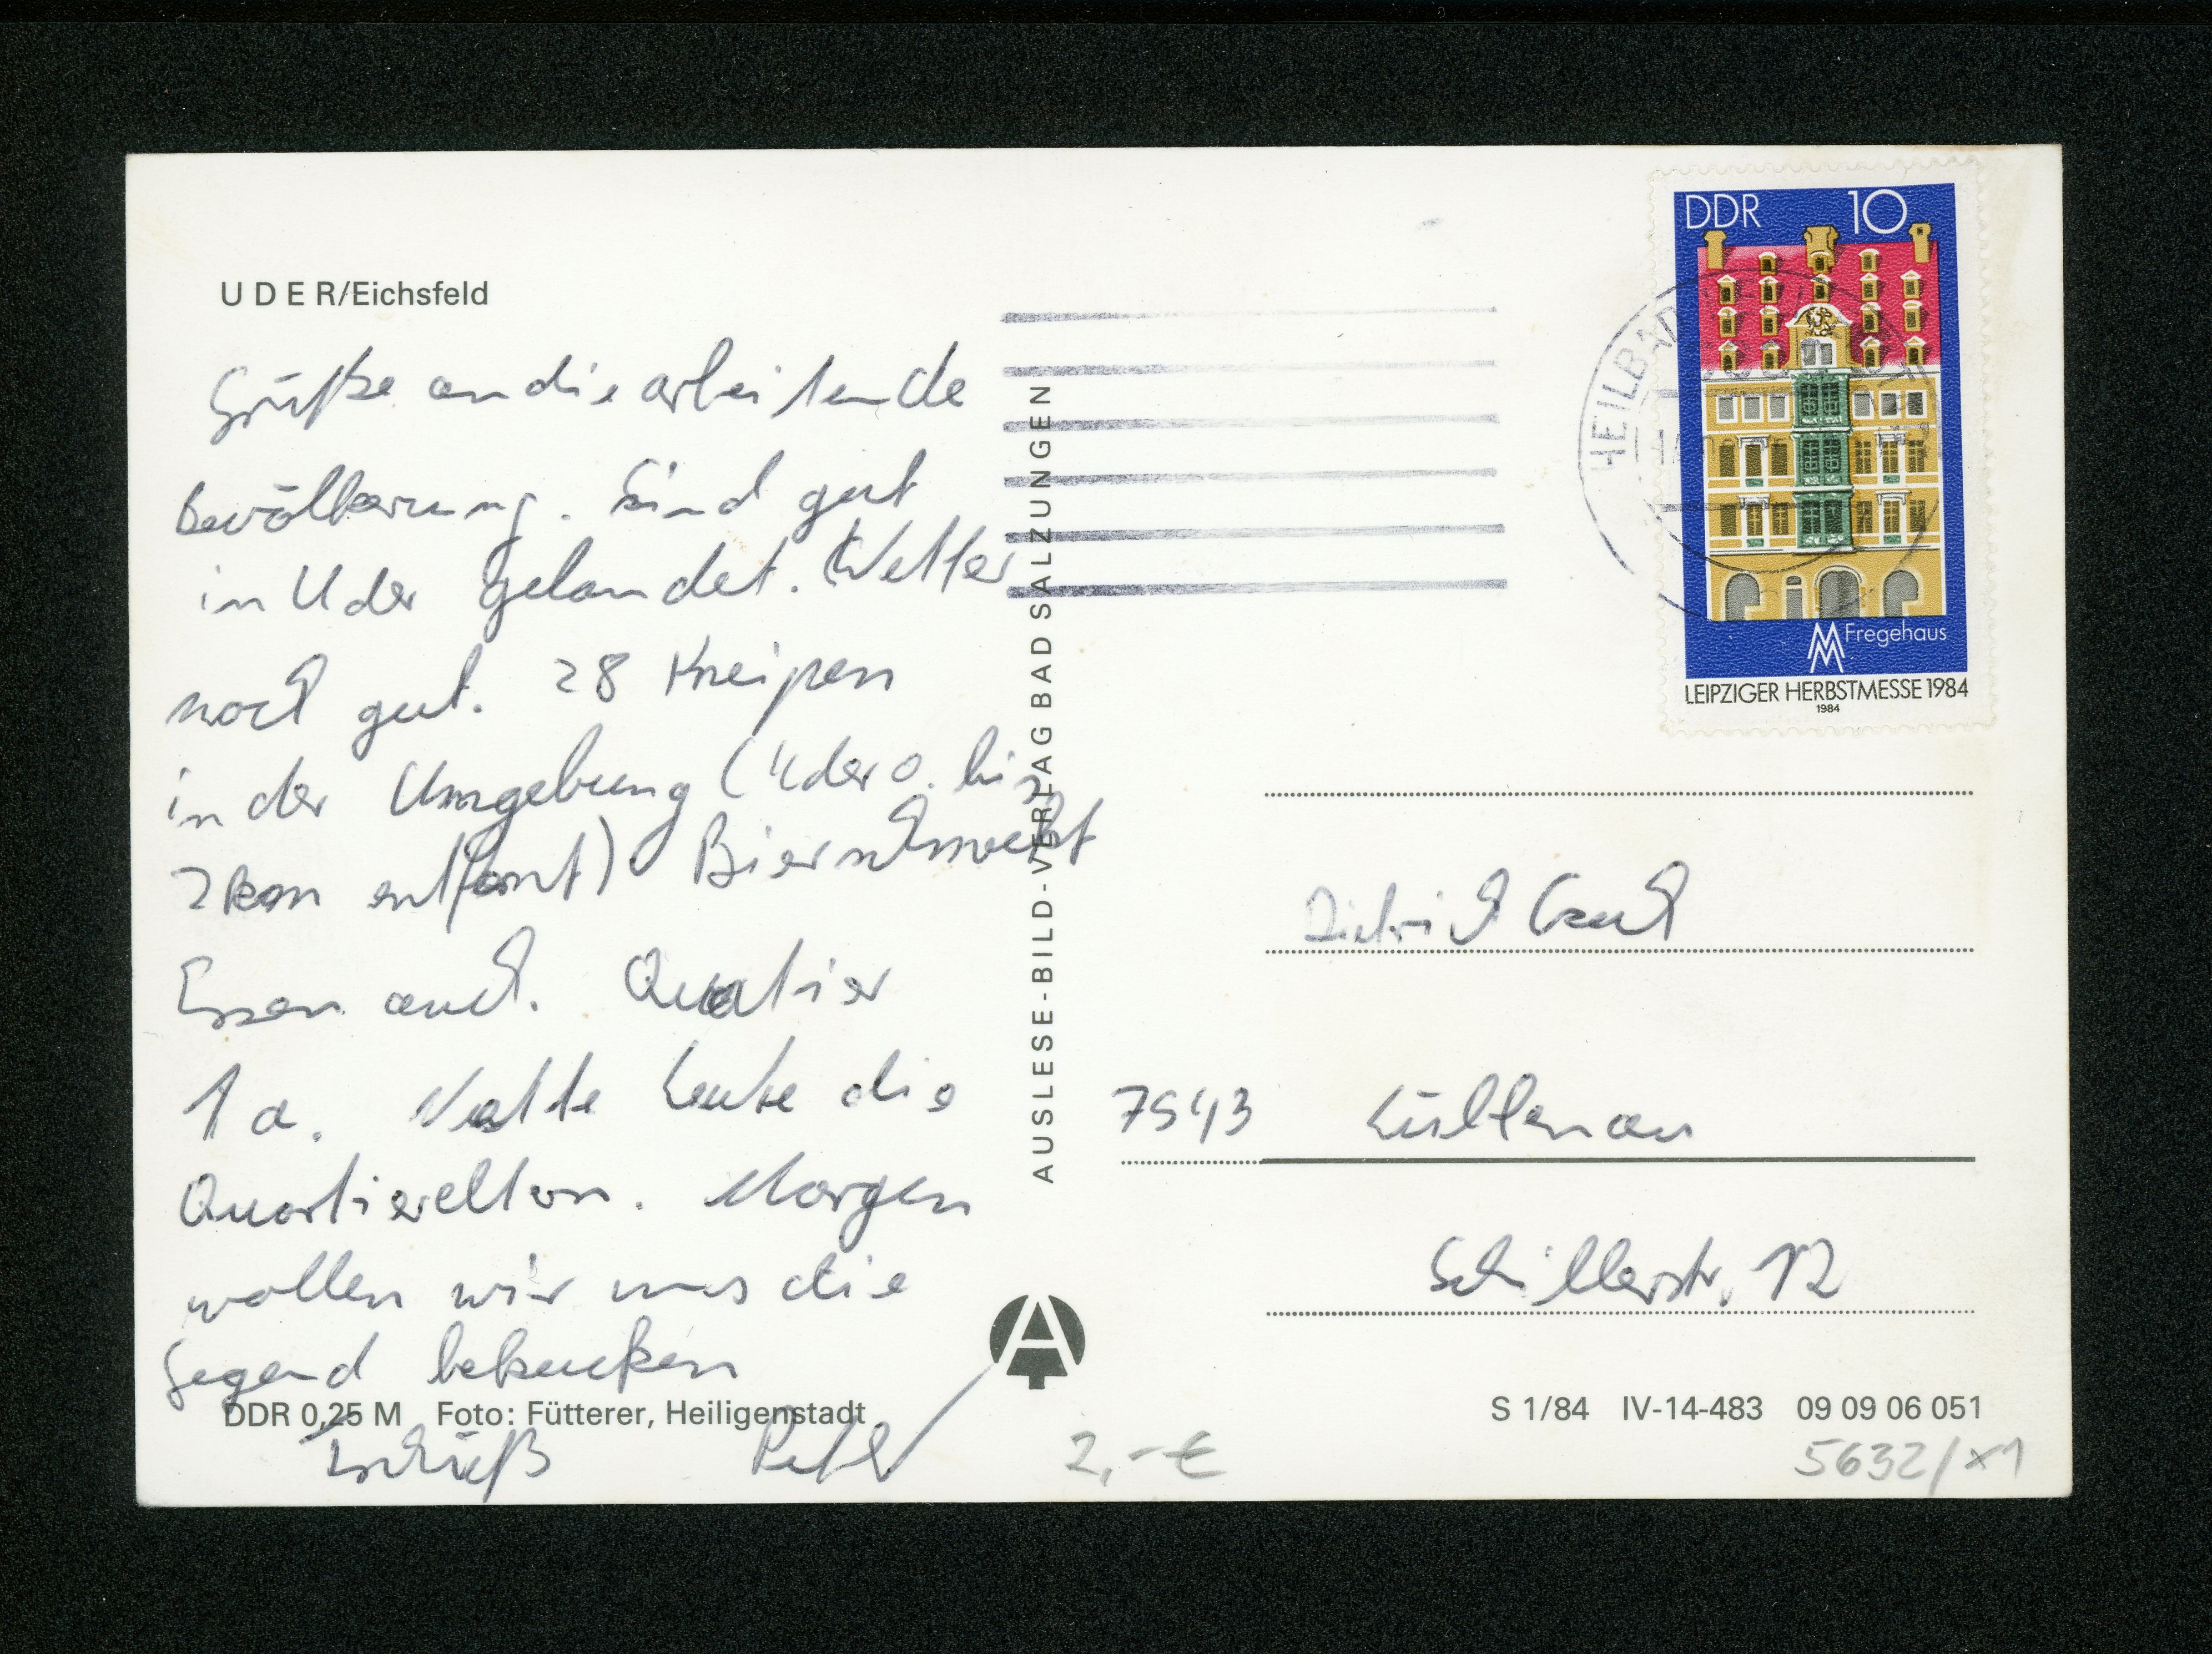 UDER/Eichsfeld
Grüße an die arbeitende
Bevölkerung. Sind gut
in Uder gelandet. Wetter
noch gut. 28 Kneipen
in der Umgebung (Uder o. bis
2km entfernt) Bier schmeckt
Essen auch. Quatier
1a. Nette Leute die
Quartiereltern. Morgen
wollen wir uns die
Gegend bekucken
Tschüß Peter
DDR 0,25 M Foto: Fütterer, Heiligenstadt
AUSLESE-BILD-VERLAG BAD SALZUNGEN
DDR 10
Fregehaus
LEIPZIGER HERBSTMESSE 1984
1984
HEILBAD
Dietrich
7543 Lübbenau
Schillerstr. 12
S 1/84 IV-14-483 09 09 06 051
2,-€
5632/x1